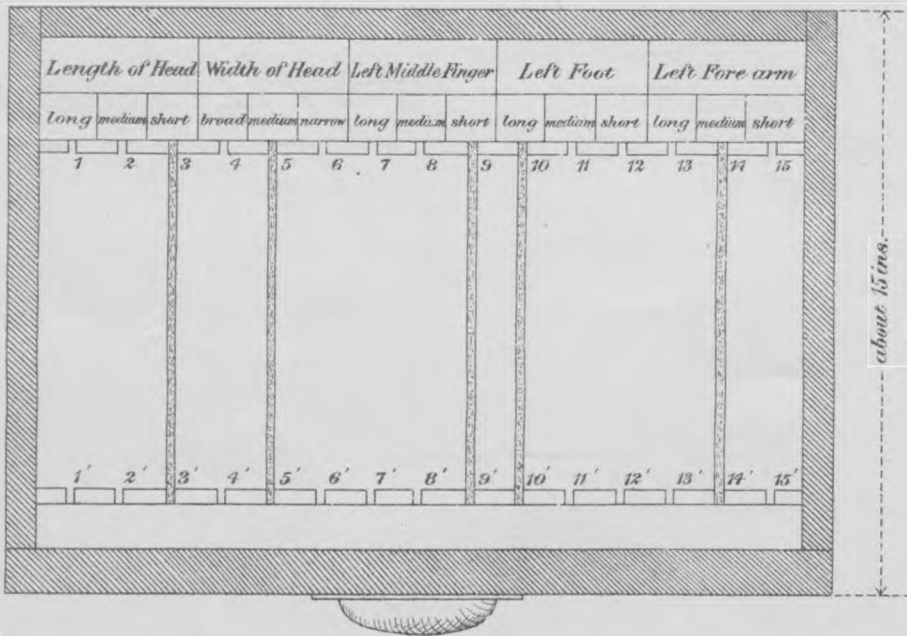 Length of Head Width of Head Left Middle Finger Left Foot Left Fore arm
long medium short broad medium narrow long medium short long medium short long medium short
1 2 3 4 5 6 7 8 9 10 11 12 13 14 15
about 15 ins.
1' 2' 3' 4' 5' 6' 7' 8' 9' 10' 11' 12' 13' 14' 15'